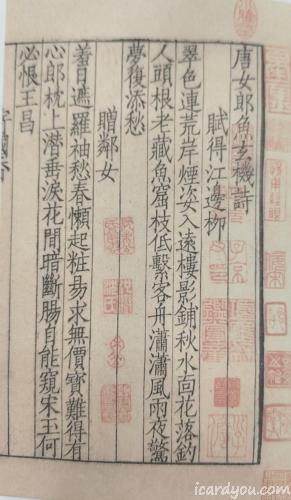 唐女郎魚玄機詩
賦得江邊柳
翠色連荒岸煙姿入遠樓影鋪秋水面花落釣
人頭根老藏魚窟枝低繫客舟瀟瀟風雨夜驚
夢復添愁
贈鄰女
羞日遮羅袖愁春懶起粧易求無價寶難得有
心郎枕上潛垂淚花間暗斷腸自能窺宋玉何
必恨王昌
icardyou.com